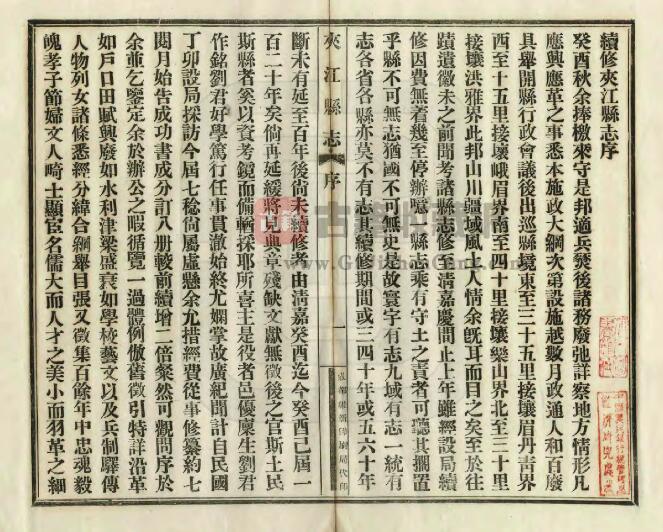 續修夾江縣志序
癸酉秋余捧檄來守是邦適兵燹後諸務廢弛詳察地方情形凡
應興應革之事悉本施政大綱次第設施越數月政通人和百廢
具舉開縣行政會議後出巡縣境東至三十五里接壤眉丹青界
西至十五里接壤峨眉界南至四十里接壤樂山界北至三十里
接壤洪雅界此邦山川疆域風土人情余旣耳而目之矣至於往
蹟遺徽未之前聞考諸縣志修至清嘉慶間止上年雖經設局續
修因費無着幾至停辦噫縣志乘有守土之責者可聽其擱置
乎縣不可無志猶國不可無史是故寰宇有志九域有志一統有
志各省各縣亦莫不有志其續修期間或三四十年或五六十年
夾江縣志 序 一
斷未有延至百年後尙未續修者由清嘉癸酉迄今癸酉已屆一
百二十年矣倘再延緩將見典章殘缺文獻無徵後之官斯土民
斯縣者奚以資考鏡而備輶採耶所喜主是役者邑優廩生劉君
作銘劉君好學篤行任事貫澈始終尤嫻掌故廣紀聞計自民國
丁卯設局採訪今屆七稔尙屬虛懸余尤措經費從事修纂約七
閱月始告成功書成分訂八册較前續增二倍粲然可觀問序於
余並乞鑒定余於辦公之暇循覽一過體例倣舊徵引特詳沿革
如戶口田賦興廢如水利津梁盛衰如學校藝文以及兵制驛傳
人物列女諸條悉經分緯合綱舉目張又徵集百餘年中忠魂毅
魄孝子節婦文人畸士顯宦名儒大而人才之美小而羽革之細